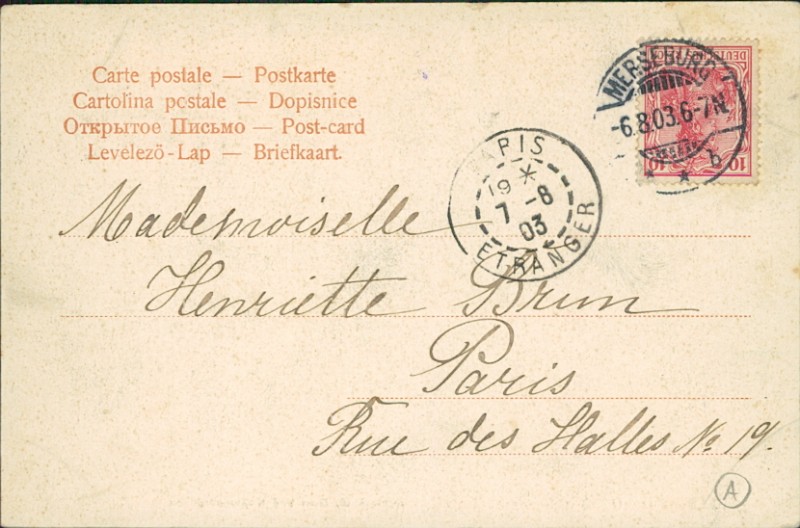 Carte postale — Postkarte
Cartolina postale — Dopisnice
Открытое Письмо — Post-card
Levelező-Lap — Briefkaart.
MERSEBURG 1
-6.8.03.6-7N.
* * b
DEUTSCHES REICH
10 10
PARIS
19 *
7 -8
03
ETRANGER
Mademoiselle
Henriette Brun
Paris
Rue des Halles No 19.
A